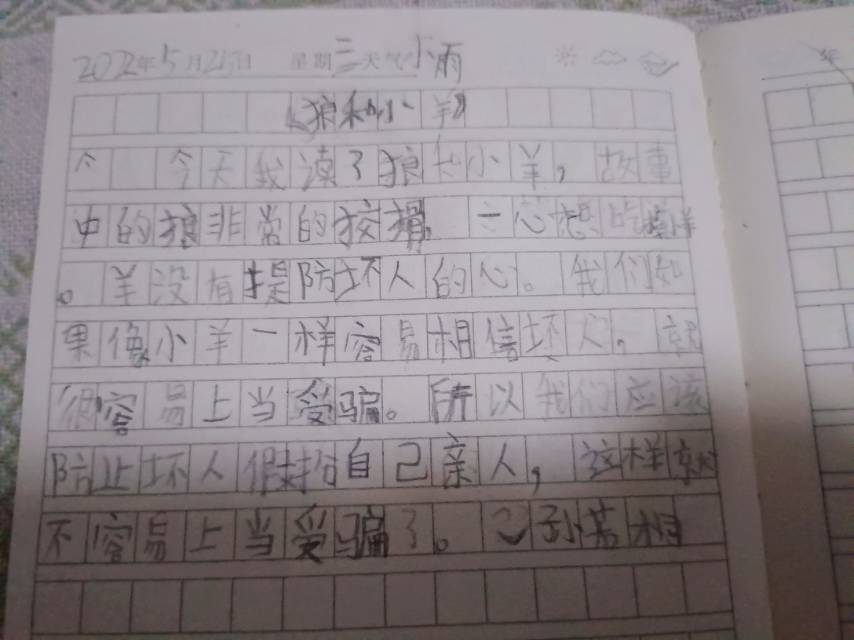 2022年5月25日 星期三 天气小雨
《狼和小羊》
今 今天我读了狼和小羊，故事
中的狼非常的狡猾，一心想吃小羊
。羊没有提防坏人的心。我们如
果像小羊一样容易相信坏人，就
很容易上当受骗。所以我们应该
防止坏人假扮自己亲人，这样就
不容易上当受骗了。
年